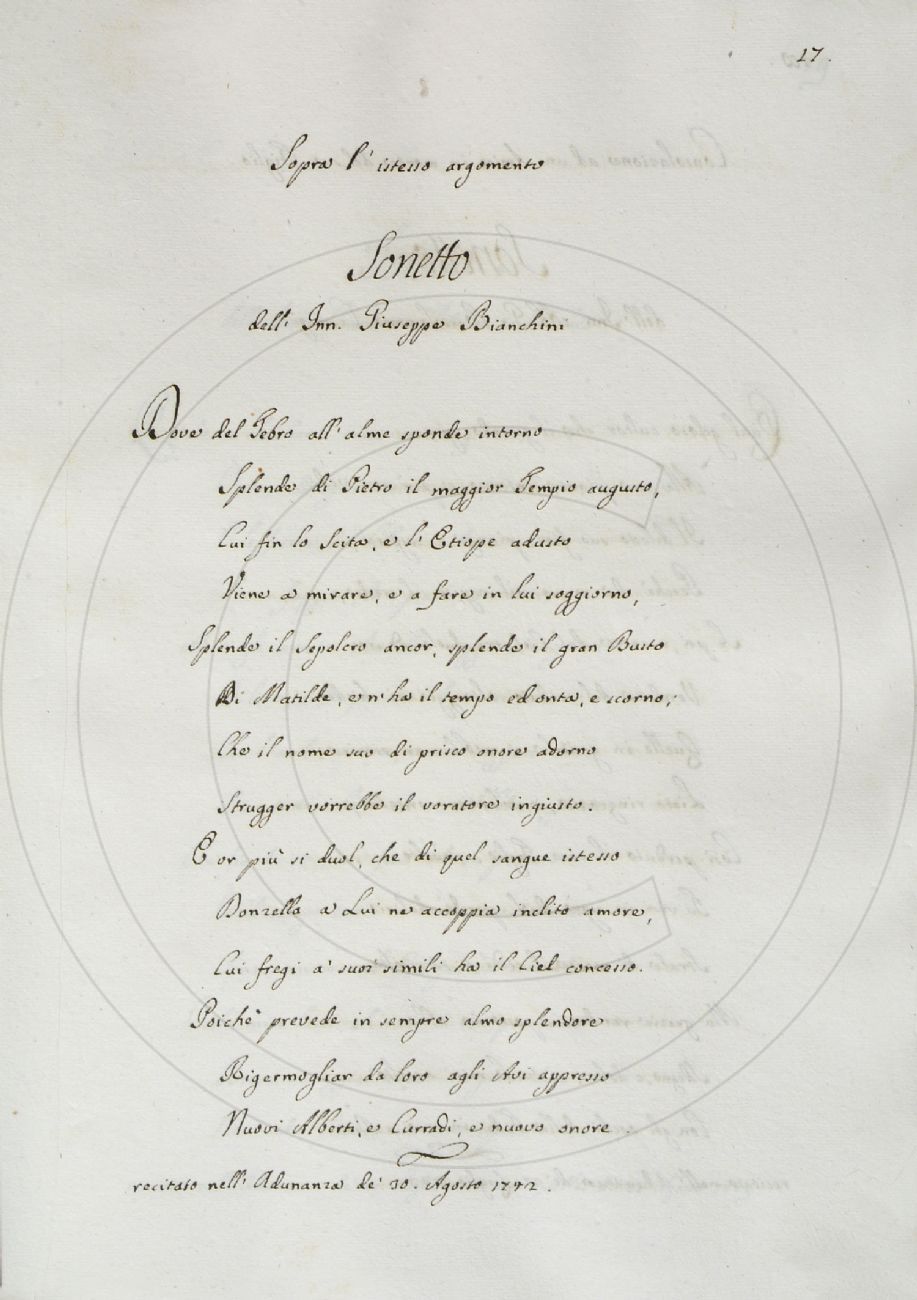 17.
Sopra l' istesso argomento
Sonetto
dell' Inn. Giuseppe Bianchini
Dove del Tebro all' alme sponde intorno
Splende di Pietro il maggior Tempio augusto,
Cui fin lo Scita, e l' Etiope adusto
Viene a mirare, e a fare in lui soggiorno,
Splende il Sepolcro ancor, splende il gran Busto
Di Matilde, e n' ha il tempo ed onta, e scorno;
Che il nome suo di prisco onore adorno
Strugger vorrebbe il voratore ingiusto.
E or più si duol, che di quel sangue istesso
Donzella a Lui ne accoppia inclito amore,
Cui fregi a' suoi simili ha il Ciel concesso.
Poichè prevede in sempre almo splendore
Rigermogliar da loro agli Avi appresso
Nuovi Alberti, e Curradi, e nuovo onore.
recitato nell' Adunanza de' 30. Agosto